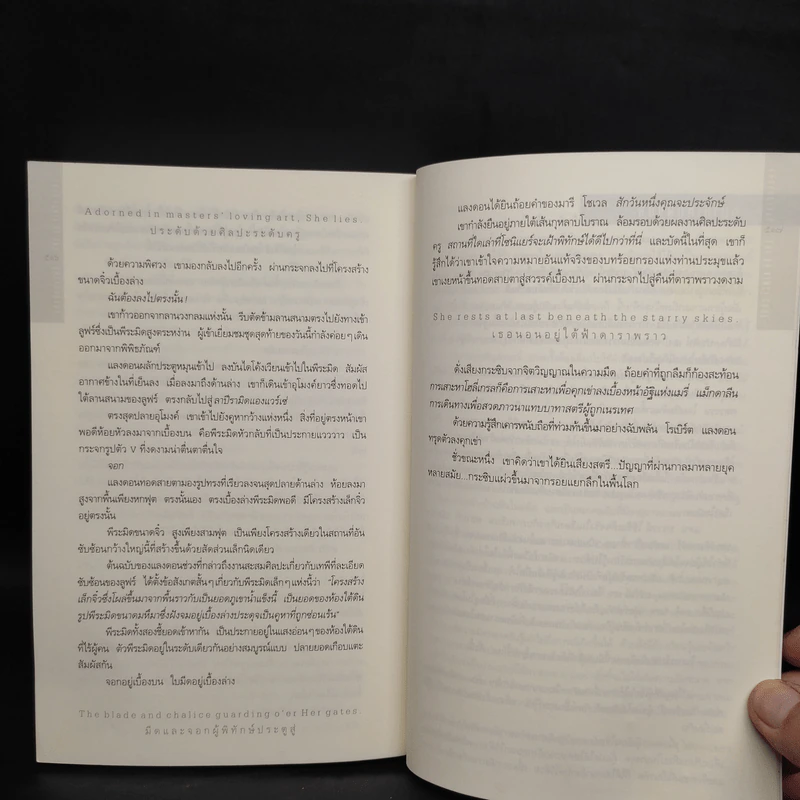 Adorned in masters' loving art, She lies.
ประดับด้วยศิลปะระดับครู
ด้วยความพิศวง เขามองกลับลงไปอีกครั้ง ผ่านกระจกลงไปที่โครงสร้าง
ขนาดจิ๋วเบื้องล่าง
ฉันต้องลงไปตรงนั้น!
เขาก้าวออกจากลานวงกลมแห่งนั้น รีบตัดข้ามลานสนามตรงไปยังทางเข้า
ลูฟร์ซึ่งเป็นพีระมิดสูงตระหง่าน ผู้เข้าเยี่ยมชมชุดสุดท้ายของวันนี้กำลังค่อยๆ เดิน
ออกมาจากพิพิธภัณฑ์
แลงดอนผลักประตูหมุนเข้าไป ลงบันไดโค้งเวียนเข้าไปในพีระมิด สัมผัส
อากาศข้างในที่เย็นลง เมื่อลงมาถึงด้านล่าง เขาก็เดินเข้าอุโมงค์ยาวซึ่งทอดไป
ใต้ลานสนามของลูฟร์ ตรงกลับไปสู่ ลาปีรามิดแองแวร์เซ
ตรงสุดปลายอุโมงค์ เขาเข้าไปยังคูหากว้างแห่งหนึ่ง สิ่งที่อยู่ตรงหน้าเขา
พอดีห้อยหัวลงมาจากเบื้องบน คือพีระมิดหัวกลับที่เป็นประกายแวววาว เป็น
กระจกรูปตัว V ที่งดงามน่าตื่นตาตื่นใจ
จอก
แลงดอนทอดสายตามองรูปทรงที่เรียวลงจนสุดปลายด้านล่าง ห้อยลงมา
สูงจากพื้นเพียงหกฟุต ตรงนั้นเอง ตรงเบื้องล่างพีระมิดพอดี มีโครงสร้างเล็กจิ๋ว
อยู่ตรงนั้น
พีระมิดขนาดจิ๋ว สูงเพียงสามฟุต เป็นเพียงโครงสร้างเดียวในสถานที่อัน
ซับซ้อนกว้างใหญ่นี้ที่สร้างขึ้นด้วยสัดส่วนเล็กนิดเดียว
ต้นฉบับของแลงดอนช่วงที่กล่าวถึงงานสะสมศิลปะเกี่ยวกับเทพีที่ละเอียด
ซับซ้อนของลูฟร์ ได้ตั้งข้อสังเกตสั้นๆ เกี่ยวกับพีระมิดเล็กๆ แห่งนี้ว่า "โครงสร้าง
เล็กจิ๋วซึ่งโผล่ขึ้นมาจากพื้นราวกับเป็นยอดภูเขาน้ำแข็งนี้ เป็นยอดของห้องใต้ดิน
รูปพีระมิดขนาดมหึมาซึ่งฝังจมอยู่เบื้องล่างประดุจเป็นคูหาที่ถูกซ่อนเร้น"
พีระมิดทั้งสองชี้ยอดเข้าหากัน เป็นประกายอยู่ในแสงอ่อนๆ ของห้องใต้ดิน
ที่ไร้ผู้คน ตัวพีระมิดอยู่ในระดับเดียวกันอย่างสมบูรณ์แบบ ปลายยอดเกือบแตะ
สัมผัสกัน
จอกอยู่เบื้องบน ใบมีดอยู่เบื้องล่าง
The blade and chalice guarding o'er Her gates.
มีดและจอกผู้พิทักษ์ประตูสู่
แลงดอนได้ยินถ้อยคำของมารี โชเวล สักวันหนึ่งคุณจะประจักษ์
เขากำลังยืนอยู่ภายใต้เส้นกุหลาบโบราณ ล้อมรอบด้วยผลงานศิลปะระดับ
ครู สถานที่ใดเล่าที่โซนิแยร์จะเฝ้าพิทักษ์ได้ดีไปกว่าที่นี่ และบัดนี้ในที่สุด เขาก็
รู้สึกได้ว่าเขาเข้าใจความหมายอันแท้จริงของบทร้อยกรองแห่งท่านประมุขแล้ว
เขาเงยหน้าขึ้นทอดสายตาสู่สวรรค์เบื้องบน ผ่านกระจกไปสู่คืนที่ดาราพราวงดงาม
She rests at last beneath the starry skies.
เธอนอนอยู่ใต้ฟ้าดาราพราว
ดั่งเสียงกระซิบจากจิตวิญญาณในความมืด ถ้อยคำที่ถูกลืมก็ก้องสะท้อน
การเสาะหาโฮลี่เกรลก็คือการเสาะหาเพื่อคุกเข่าลงเบื้องหน้าอัฐิแห่งแมรี่ แม็กดาลีน
การเดินทางเพื่อสวดภาวนาแทบบาทาสตรีผู้ถูกเนรเทศ
ด้วยความรู้สึกเคารพนับถือที่ท่วมท้นขึ้นมาอย่างฉับพลัน โรเบิร์ต แลงดอน
ทรุดตัวลงคุกเข่า
ชั่วขณะหนึ่ง เขาคิดว่าเขาได้ยินเสียงสตรี...ปัญญาที่ผ่านกาลมาหลายยุค
หลายสมัย...กระซิบแผ่วขึ้นมาจากรอยแยกลึกในพื้นโลก